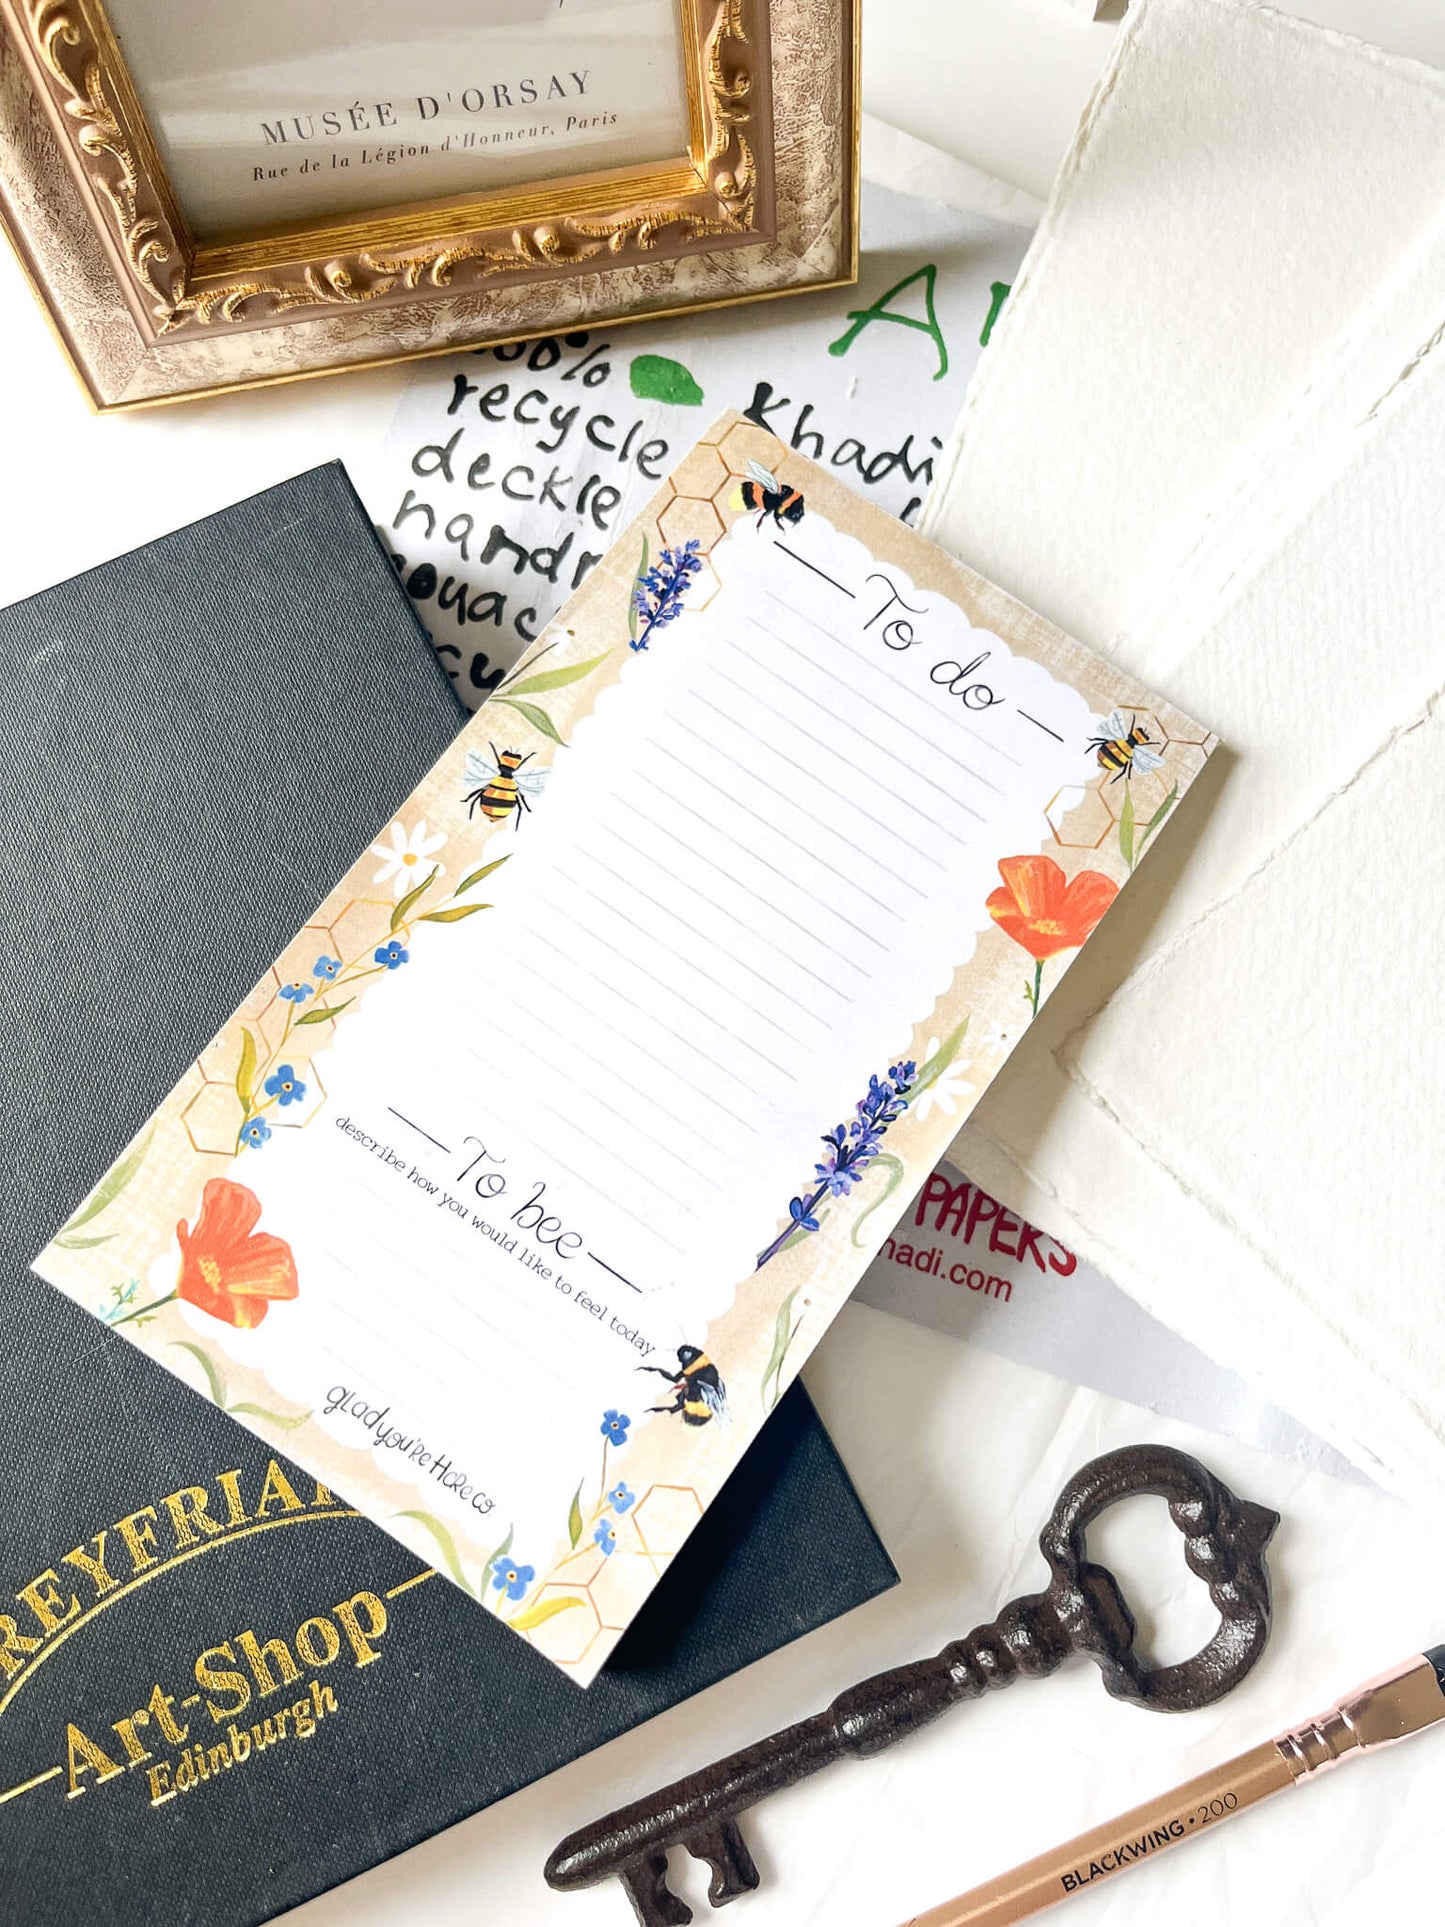 MUSÉE D'ORSAY
Rue de la Légion d'Honneur, Paris
recycle
deckle
Khadi
To do
To bee
describe how you would like to feel today
gladyou'reHereco.
PAPERS
hadi.com
Art-Shop
Edinburgh
BLACKWING • 200